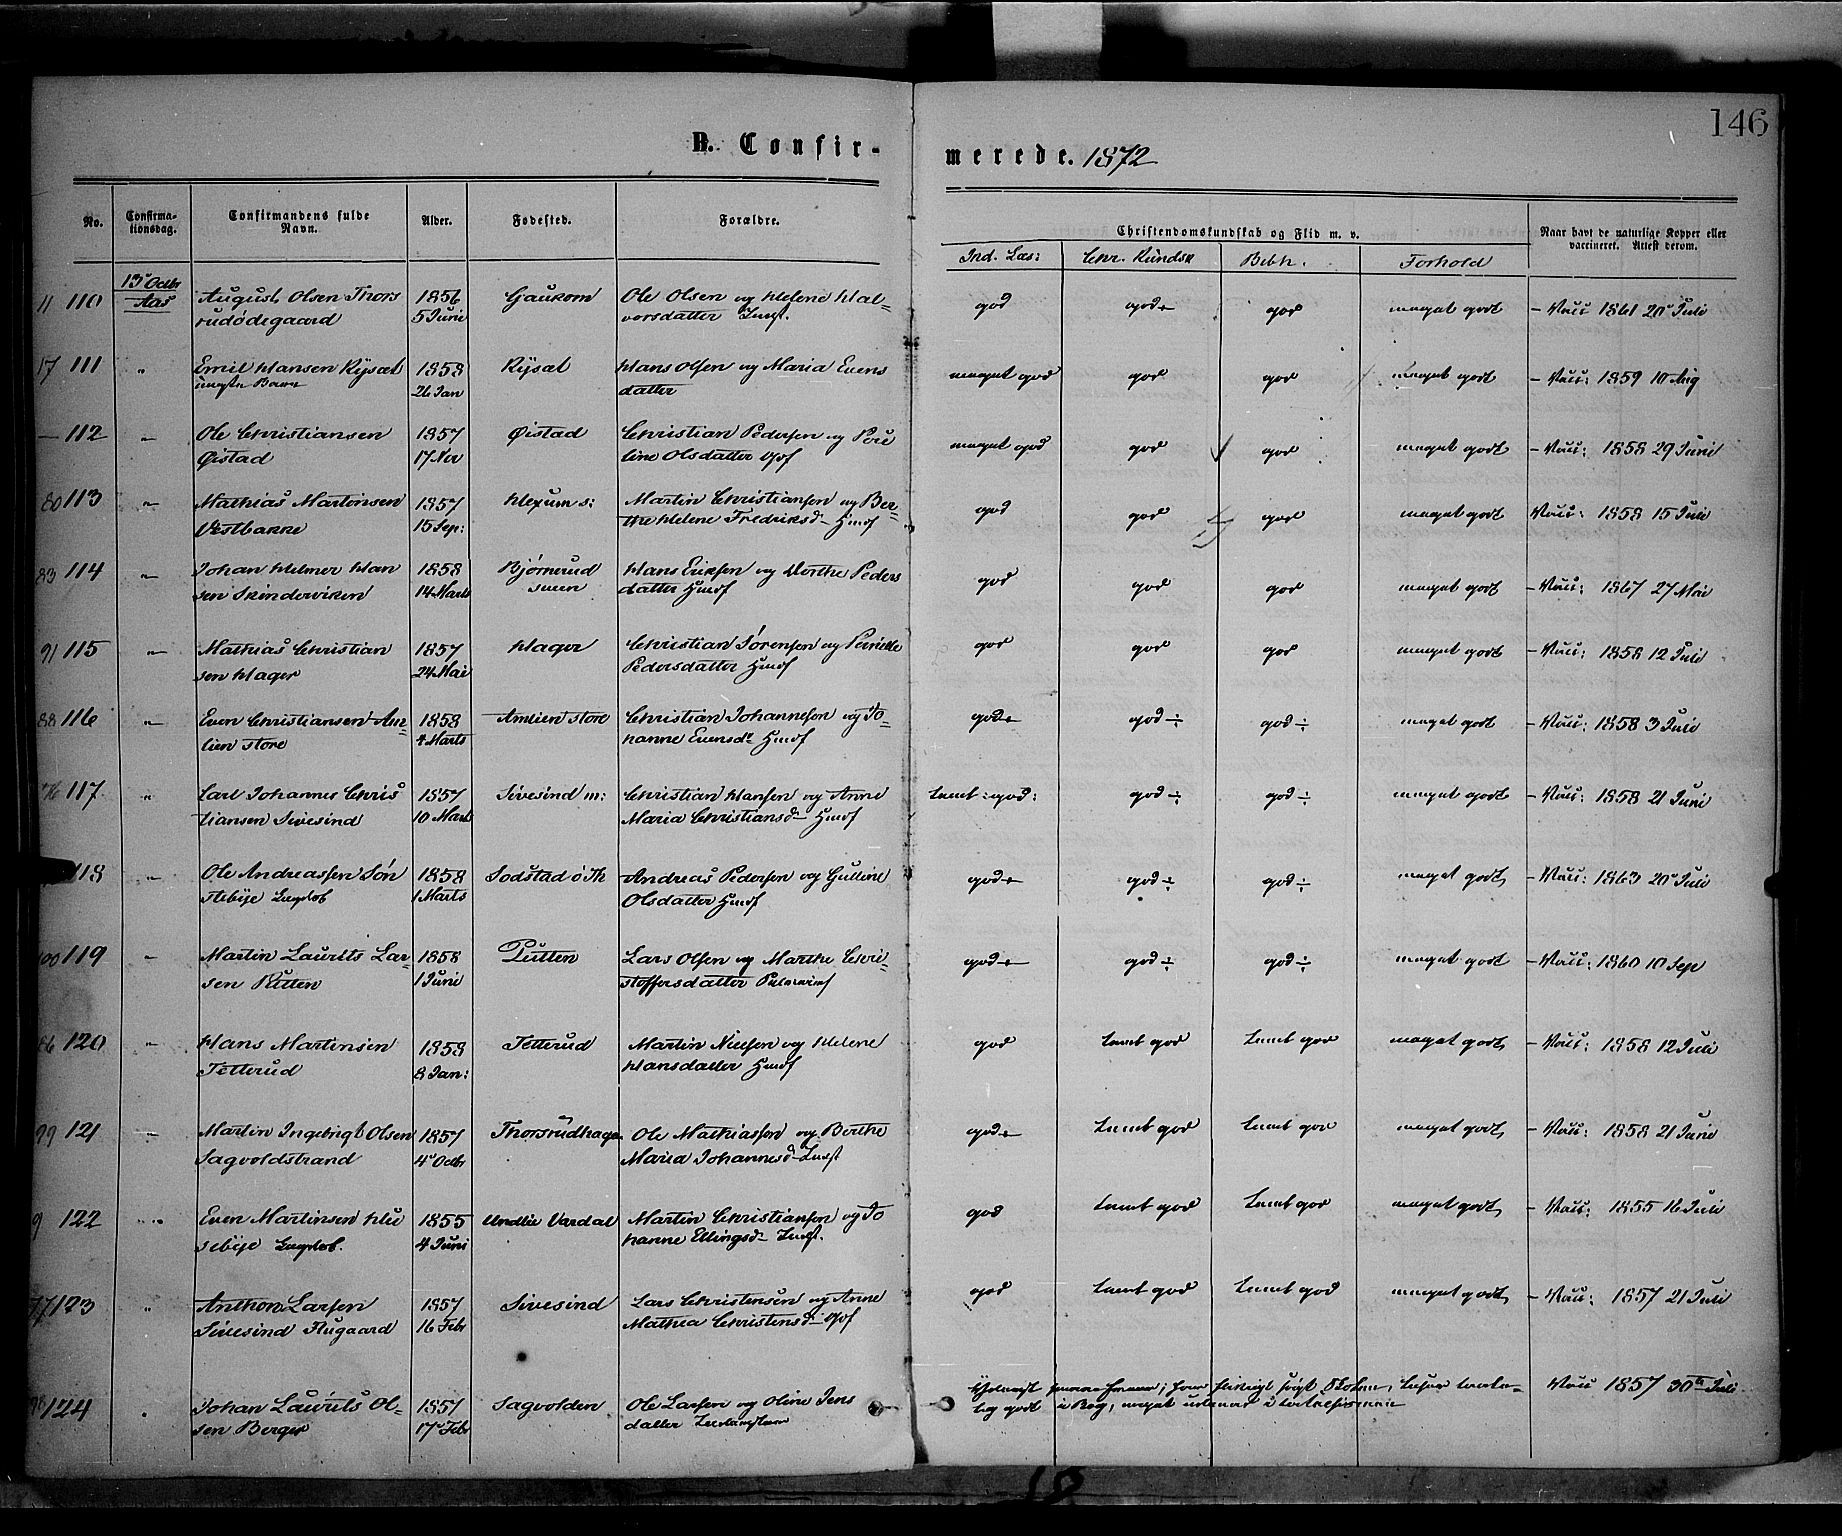 146
B. Confir-
merede. 1872
No.
Confirma-
tionsdag.
Confirmandens fulde
Navn.
Alder.
Fødested.
Forældre.
Christendomskundskab og Flid m. v.
Naar havt de naturlige Kopper eller
vaccineret. Attest derom.
Ind. Læs: Chr. Kundsk Bibh. Forhold
13de Octbr
11 110 Aas August Olsen Thors 1856 Gaukom Ole Olsen og Helene Hal- god god+ god meget godt - Vacc 1861 20de Juli
rudødegaard 5 Juni vorsdatter Indst.
17 111 " Emil Hansen Rysæt 1858 Rysæt Hans Olsen og Maria Evens meget god god god meget godt - Vacc: 1859 10 Aug
uægte Barn 26 Jan datter
— 112 " Ole Christiansen 1857 Øistad Christian Pedersen og meget god god god meget godt - Vacc: 1858 29 Juni
Øistad 17 Nov line Olsdatter
80 113 " Mathias Martinsen 1857 Hexum s: Martin Christiansen og Ber- god god god meget godt Vacc: 1858 15 Juli
Vestbakke 15 Sep: the Helene Fredriksd- Huusf
83 114 " Johan Helmer Han 1858 Bjørnerud Hans Eriksen og Dorthe Peders god god god meget godt - Vacc: 1867 27 Mai
sen Skinderviken 14 Marts sveen datter Huusf
91 115 " Mathias Christian 1857 Hager Christian Sørensen og Pernille god god god meget godt - Vacc: 1858 12 Juli
sen Hager 24 Mai Pedersdatter Huusf
88 116 " Even Christiansen Am 1858 Amlien store Christian Johannesen og Jo- god+ god ÷ god ÷ meget godt - Vacc: 1858 3 Juli
lien store 4 Marts hanne Evensdr Huusf
76 117 " Carl Johannes Chris 1857 Sivesind m: Christian Hansen og Anne temt: god: god ÷ god ÷ meget godt - Vacc: 1858 21 Juni
tiansen Sivesind 10 Marts Maria Christiansd- Huusf
118 " Ole Andreassen Søn 1858 Sodstad ø Th Andreas Pedersen og Gulline god+ god ÷ god ÷ meget godt - Vacc: 1863 20de Juli
stebye Lægdsb 1 Marts Olsdatter Huusf
100 119 " Martin Laurits Lar- 1858 Putten Lars Olsen og Marthe Chri- god+ god ÷ god ÷ meget godt - Vacc: 1860 10 Sep
sen Putten 1 Juni stoffersdatter
86 120 " Hans Martinsen 1858 Tetterud Martin Nielsen og Helene god temt god temt god meget godt - Vacc: 1858 12 Juli
Tetterud 8 Jan: Hansdatter Huusf
99 121 " Martin Ingebrigt Olsen 1857 Thorsrudhagen Ole Mathiassen og Berthe god+ temt god temt god meget godt - Vacc: 1858 21 Juni
Sagvoldstrand 4de Octbr Maria Johannesd- Indst
9 122 " Even Martinsen Hu 1855 Undlie Vardal Martin Christiansen og Jo god temt god temt god meget godt - Vacc: 1855 16 Juli
sebye Lægdsb. 4 Juni hanne Ellingsd- Indst.
77 123 " Anthon Larsen 1857 Sivesind Lars Christensen og Anne god temt god temt god meget godt - Vacc: 1857 21 Juli
Sivesind Flugaard 16 Febr Mathea Christensd-
98 124 " Johan Laurits Ol- 1857 Sagvolden Ole Larsen og Oline Jens har flittigt søgt Skolen, læser Vacc 1857 30te Juli
sen Berger 17de Febr datter lig godt i Bog, meget